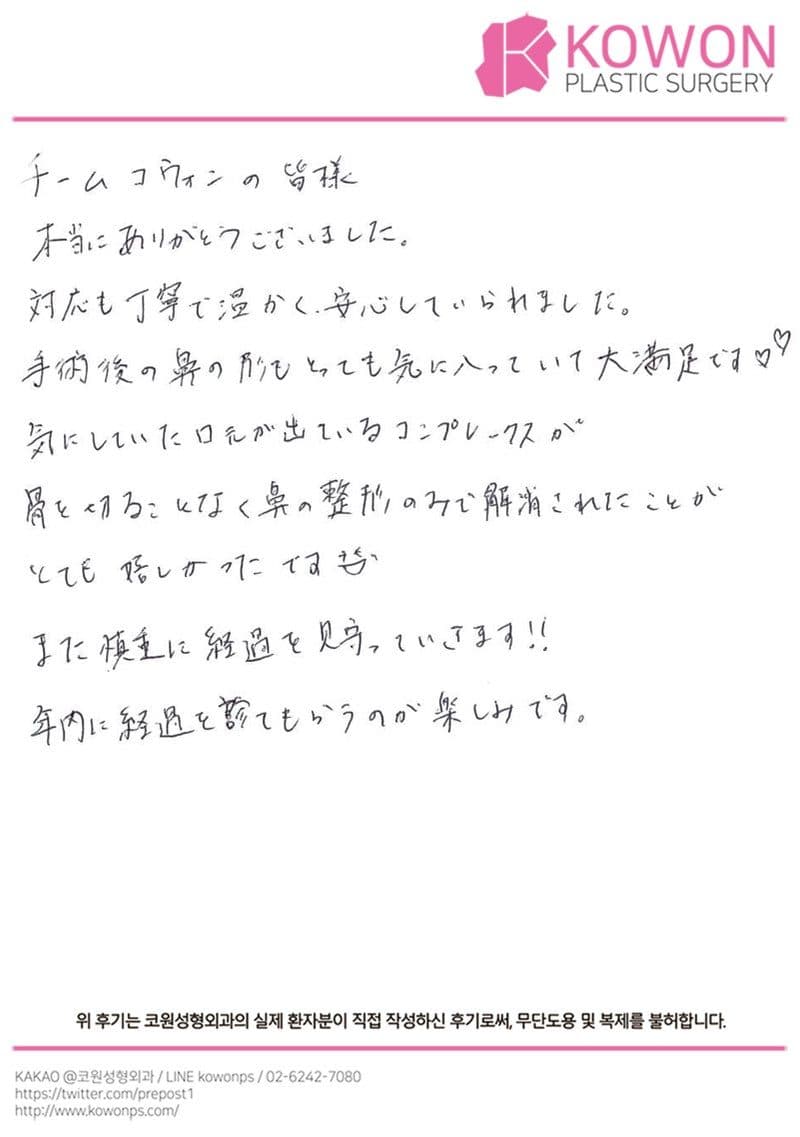 KOWON
PLASTIC SURGERY
チームコウォンの皆様
本当にありがとうございました。
対応も丁寧で温かく、安心していられました。
手術後の鼻の形もとっても気に入っていて大満足です♡♡
気にしていた口元が出ているコンプレックスが
骨を切ることなく鼻の整形のみで解消されたことが
とても嬉しかったです
また慎重に経過を見守っていきます!!
年内に経過を診てもらうのが楽しみです。
위 후기는 코원성형외과의 실제 환자분이 직접 작성하신 후기로써, 무단도용 및 복제를 불허합니다.
KAKAO @코원성형외과 / LINE kowonps / 02-6242-7080
https://twitter.com/prepost1
http://www.kowonps.com/